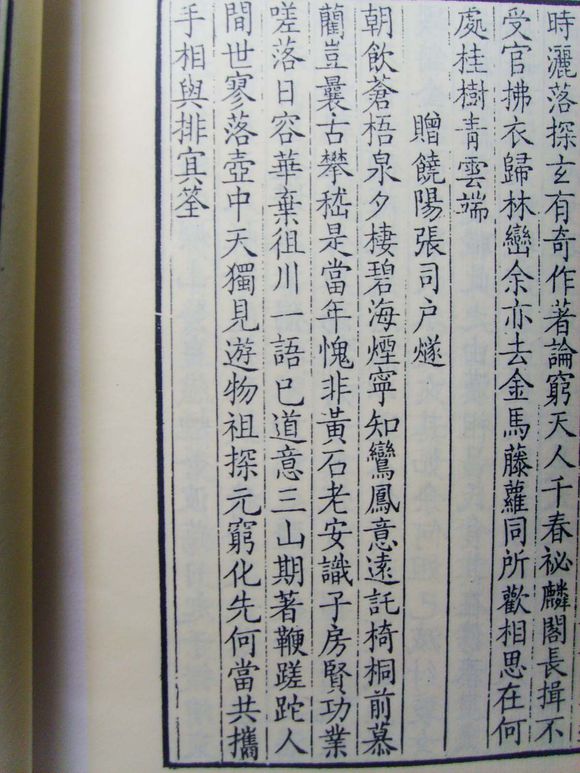 時灑落探玄有奇作著論窮天人千春祕麟閣長揖不
受官拂衣歸林巒余亦去金馬藤蘿同所歡相思在何
處桂樹青雲端
贈饒陽張司戶燧
朝飲蒼梧泉夕棲碧海煙寧知鸞鳳意遠託椅桐前慕
藺豈曩古攀嵇是當年愧非黃石老安識子房賢功業
嗟落日容華棄徂川一語已道意三山期著鞭蹉跎人
間世寥落壺中天獨見遊物祖探元窮化先何當共攜
手相與排冥筌